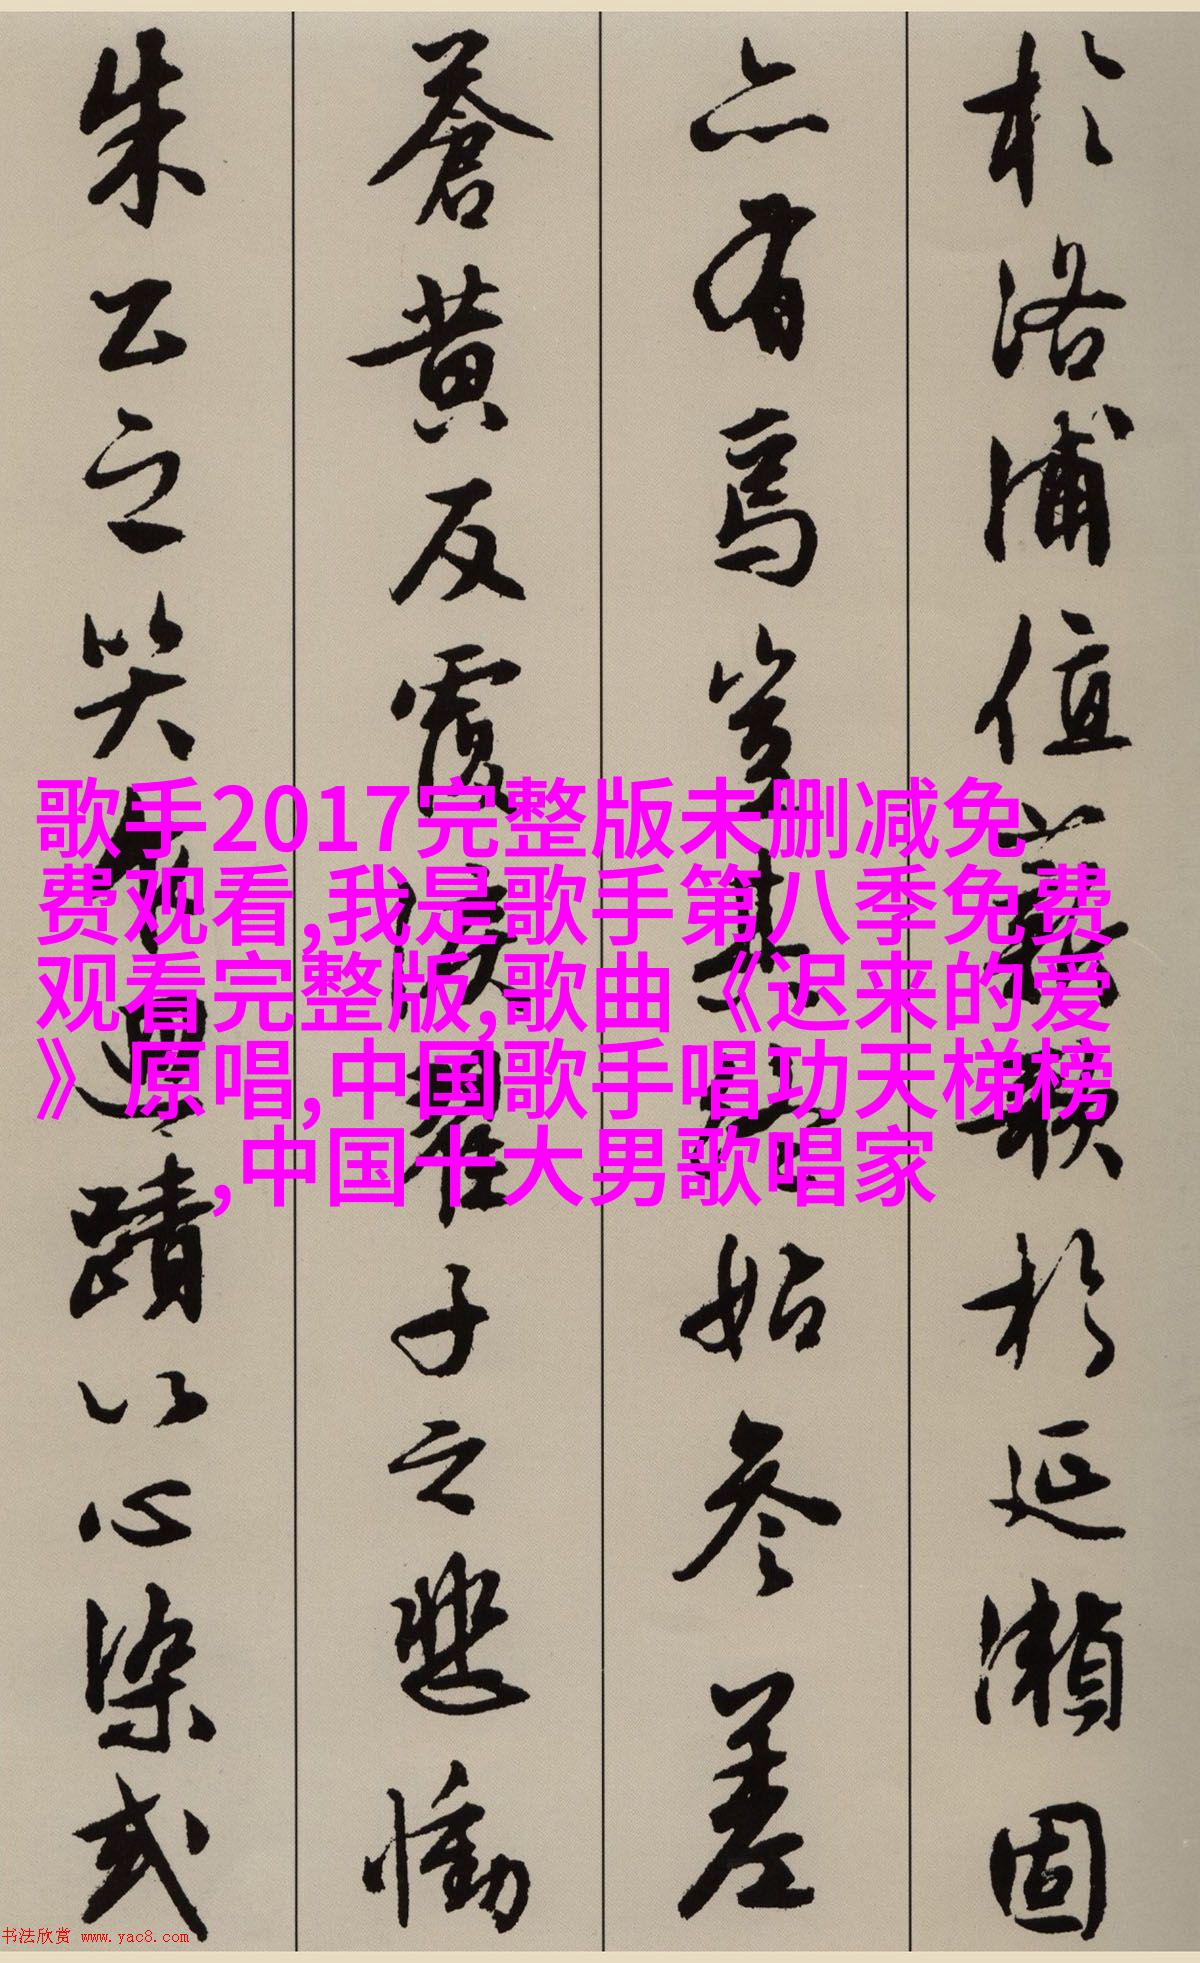 於洛浦值薪歌於延瀨固
亦有焉豈期終始參差
蒼黃反覆淚翟子之悲慟
朱公之哭乍迴蹟以心染或
歌手2017完整版未删减免
费观看,我是歌手第八季免费
观看完整版,歌曲《迟来的爱
》原唱,中国歌手唱功天梯榜
,中国十大男歌唱家
书法欣赏 www.yac8.com